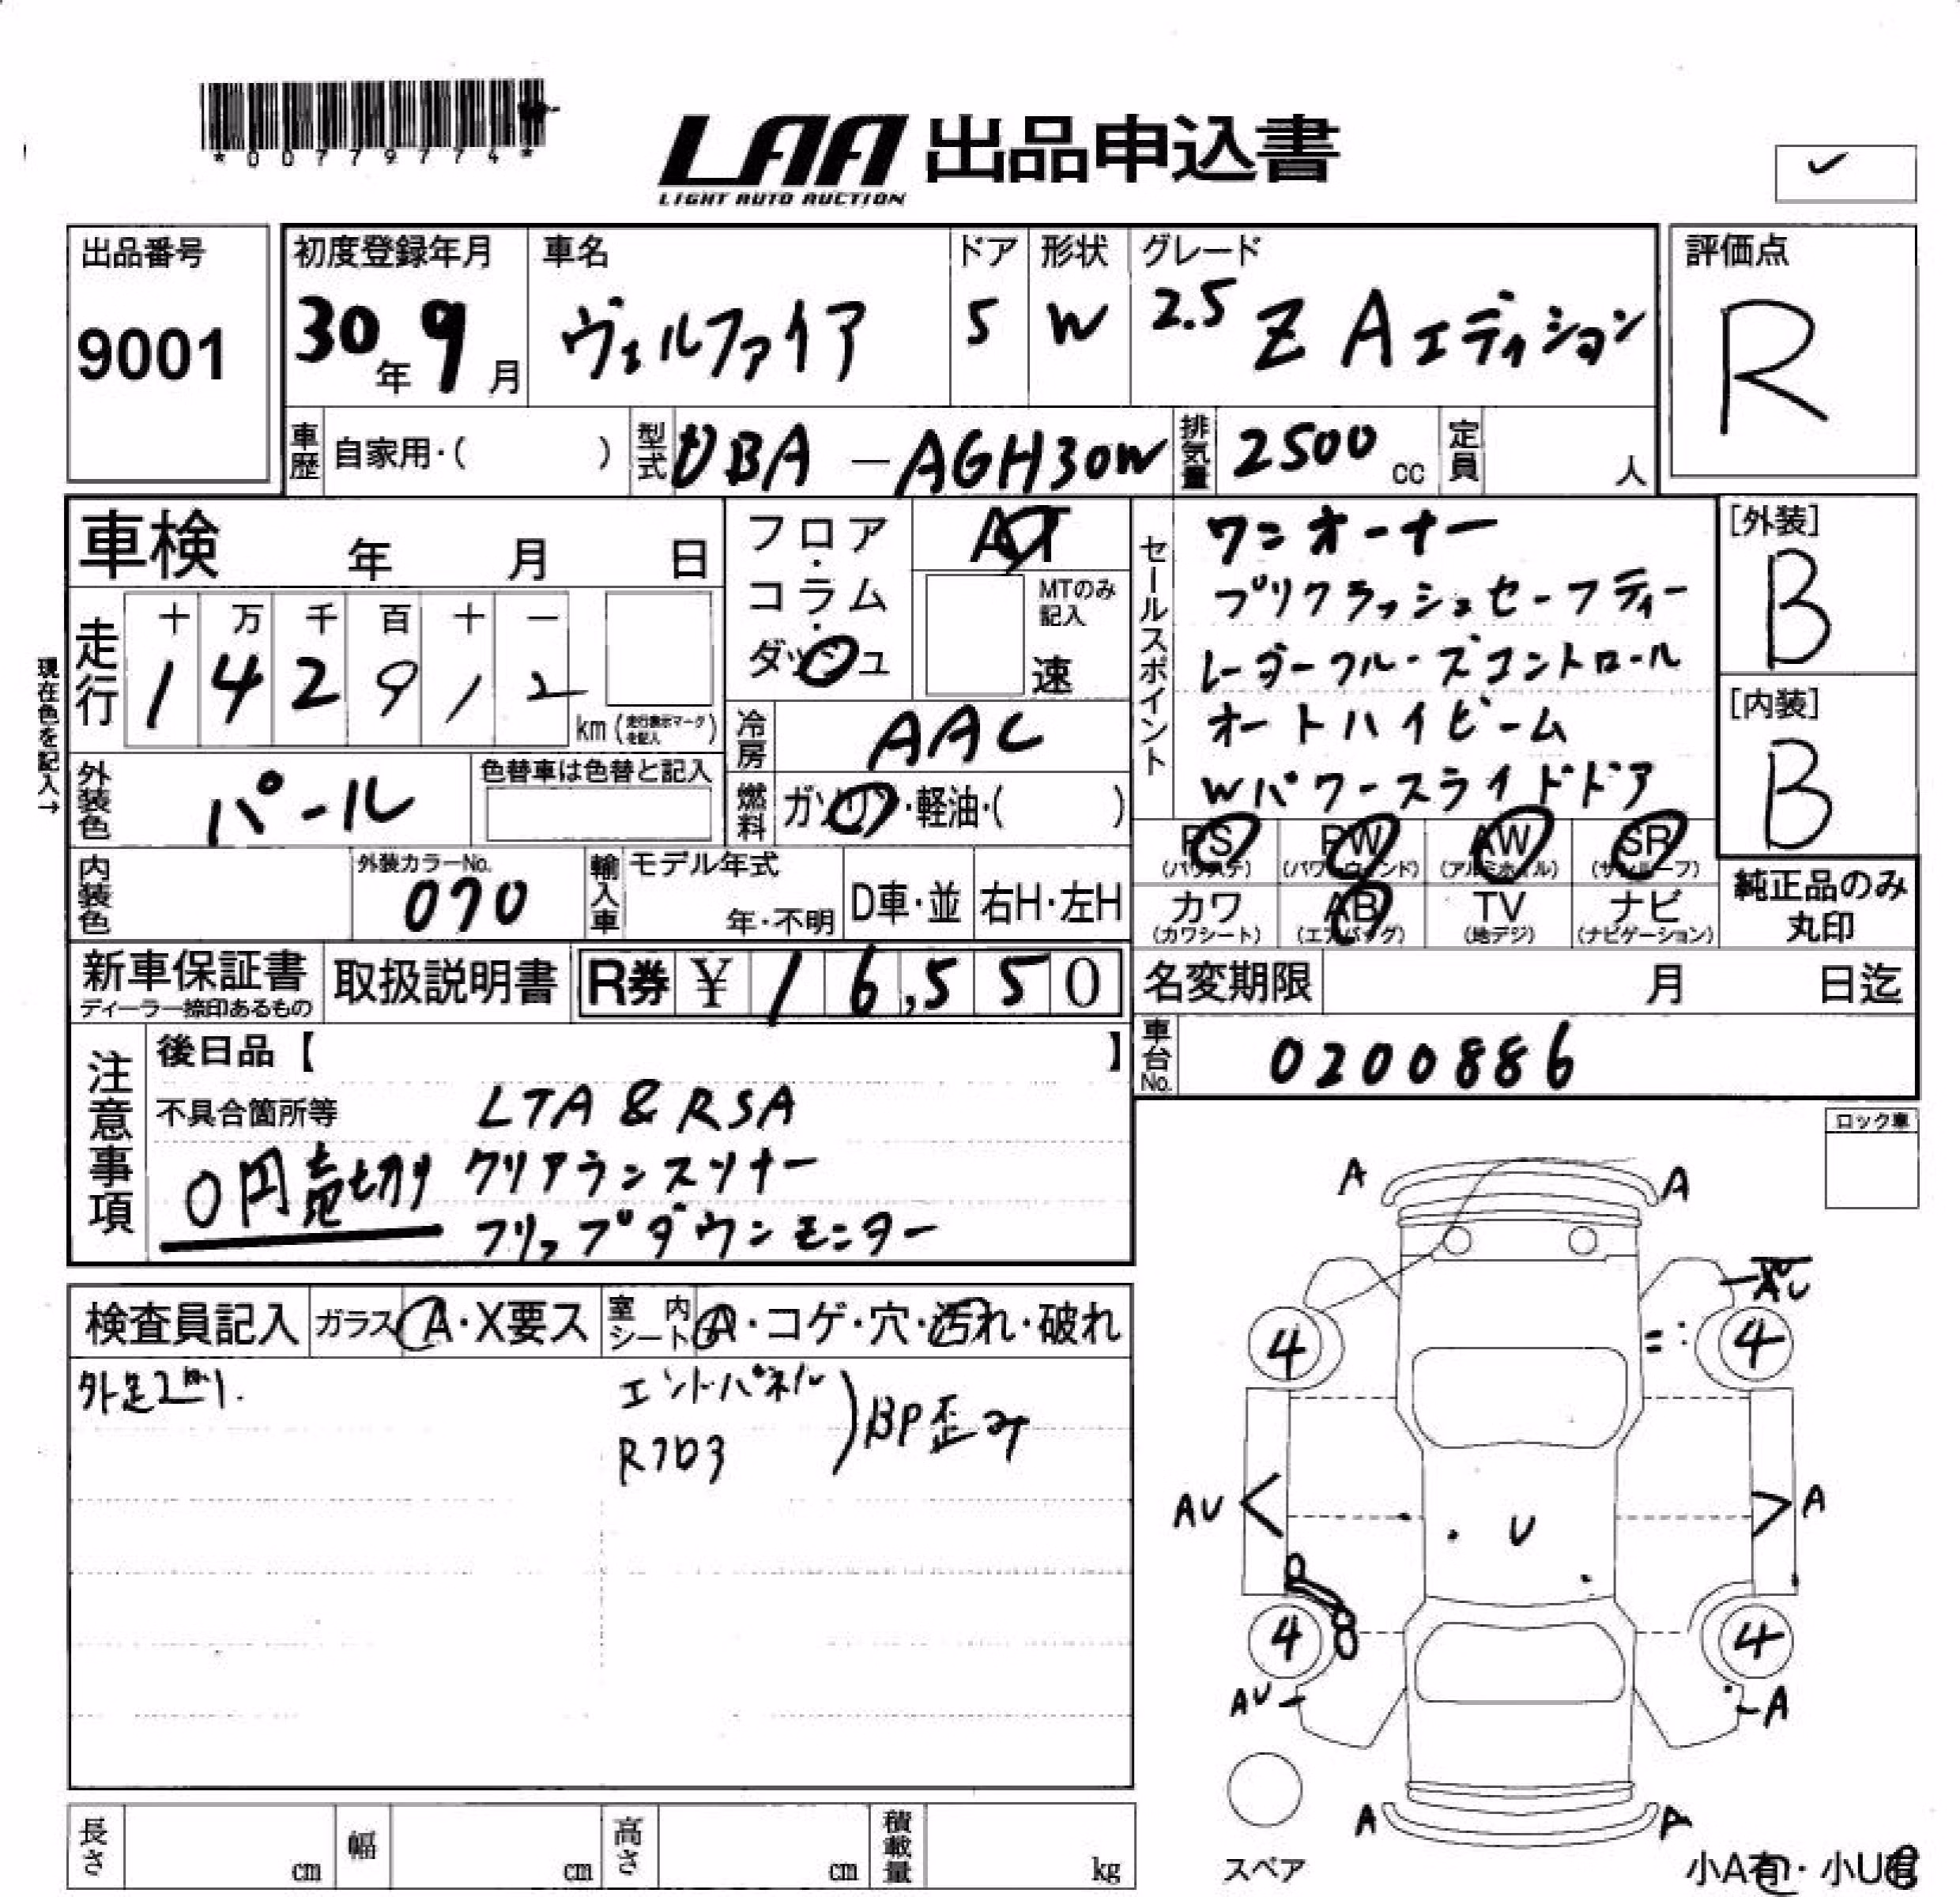 *00779774*
LAA 出品申込書
LIGHT AUTO AUCTION
出品番号
9001
初度登録年月
30年 9月
車名
ヴェルファイア
ドア
5
形状
W
グレード
2.5 Z Aエディション
評価点
R
車歴 自家用・( )
型式 DBA - AGH30W
排気量 2500 cc
定員 人
車検 年 月 日
現在色を記入→
走行
十 万 千 百 十 一
1 4 2 9 1 2
km (走行表示マークを記入)
フロア・コラム・ダッシュ
AT
MTのみ記入
速
セールスポイント
ワンオーナー
プリクラッシュセーフティー
レーダークルーズコントロール
オートハイビーム
Wパワースライドドア
[外装]
B
[内装]
B
外装色 パール
色替車は色替と記入
冷房 AAC
燃料 ガソリン・軽油・( )
PS (パワステ)
PW (パワーウィンド)
AW (アルミホイル)
SR (サンルーフ)
カワ (カワシート)
AB (エアバッグ)
TV (地デジ)
ナビ (ナビゲーション)
純正品のみ
丸印
内装色
外装カラーNo.
070
輸入車
モデル年式
年・不明
D車・並
右H・左H
新車保証書
ディーラー捺印あるもの
取扱説明書
R券 ¥ 16,550
名変期限 月 日迄
車台No. 0200886
注意事項
後日品【 】
不具合箇所等
LTA & RSA
0円売切り クリアランスソナー
フリップダウンモニター
ロック車
検査員記入
ガラス A・X要ス
室内シート A・コゲ・穴・汚れ・破れ
エンドパネル
Rフロア
BP歪み
A A
AU
4 4
AU A
U
4 4
AU A
A A
スペア
小A有・小U有
長さ cm
幅 cm
高さ cm
積載量 kg